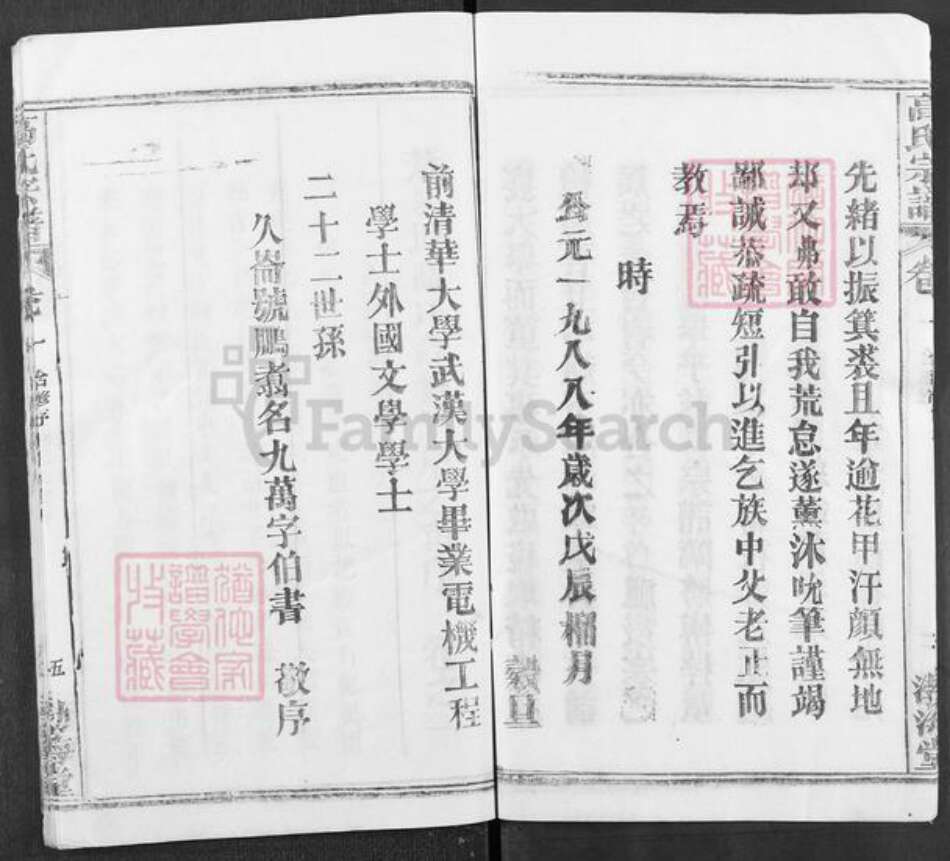 高氏宗譜
先緒以振箕裘且年逾花甲汗顏無地
却又弗敢自我荒怠遂薰沐吮筆謹竭
鄙誠恭疏短引以進乞族中父老正而
教焉
時
公元一九八八年歲次戊辰榴月 穀旦
渤海堂
前清華大學武漢大學畢業電機工程
學士外國文學學士
二十二世孫
久崙號鵬翥名九萬字伯書 敬序
合修序
五
FamilySearch